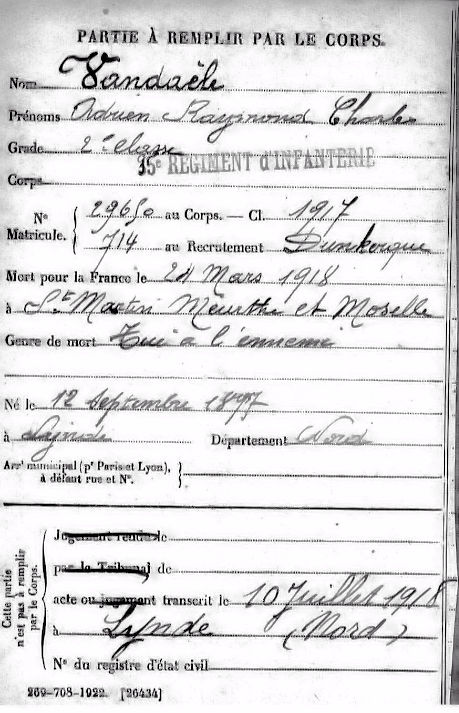 PARTIE À REMPLIR PAR LE CORPS.
Nom Vandaële
Prénoms Adrien Raymond Charles
Grade 2e classe
Corps 35e RÉGIMENT d'INFANTERIE
N° Matricule. { 29650 au Corps. — Cl. 1917
714 au Recrutement Dunkerque
Mort pour la France le 24 Mars 1918
à St Martin Meurthe et Moselle
Genre de mort Tué à l'ennemi
Né le 12 Septembre
à Département Nord
Arrt municipal (pr Paris et Lyon), à défaut rue et N°. }
Cette partie n'est pas à remplir par le Corps.
Jugement rendu le
par le Tribunal de
acte ou jugement transcrit le 10 Juillet 1918
à Lynde (Nord)
N° du registre d'état civil
269-708-1922. [26434]